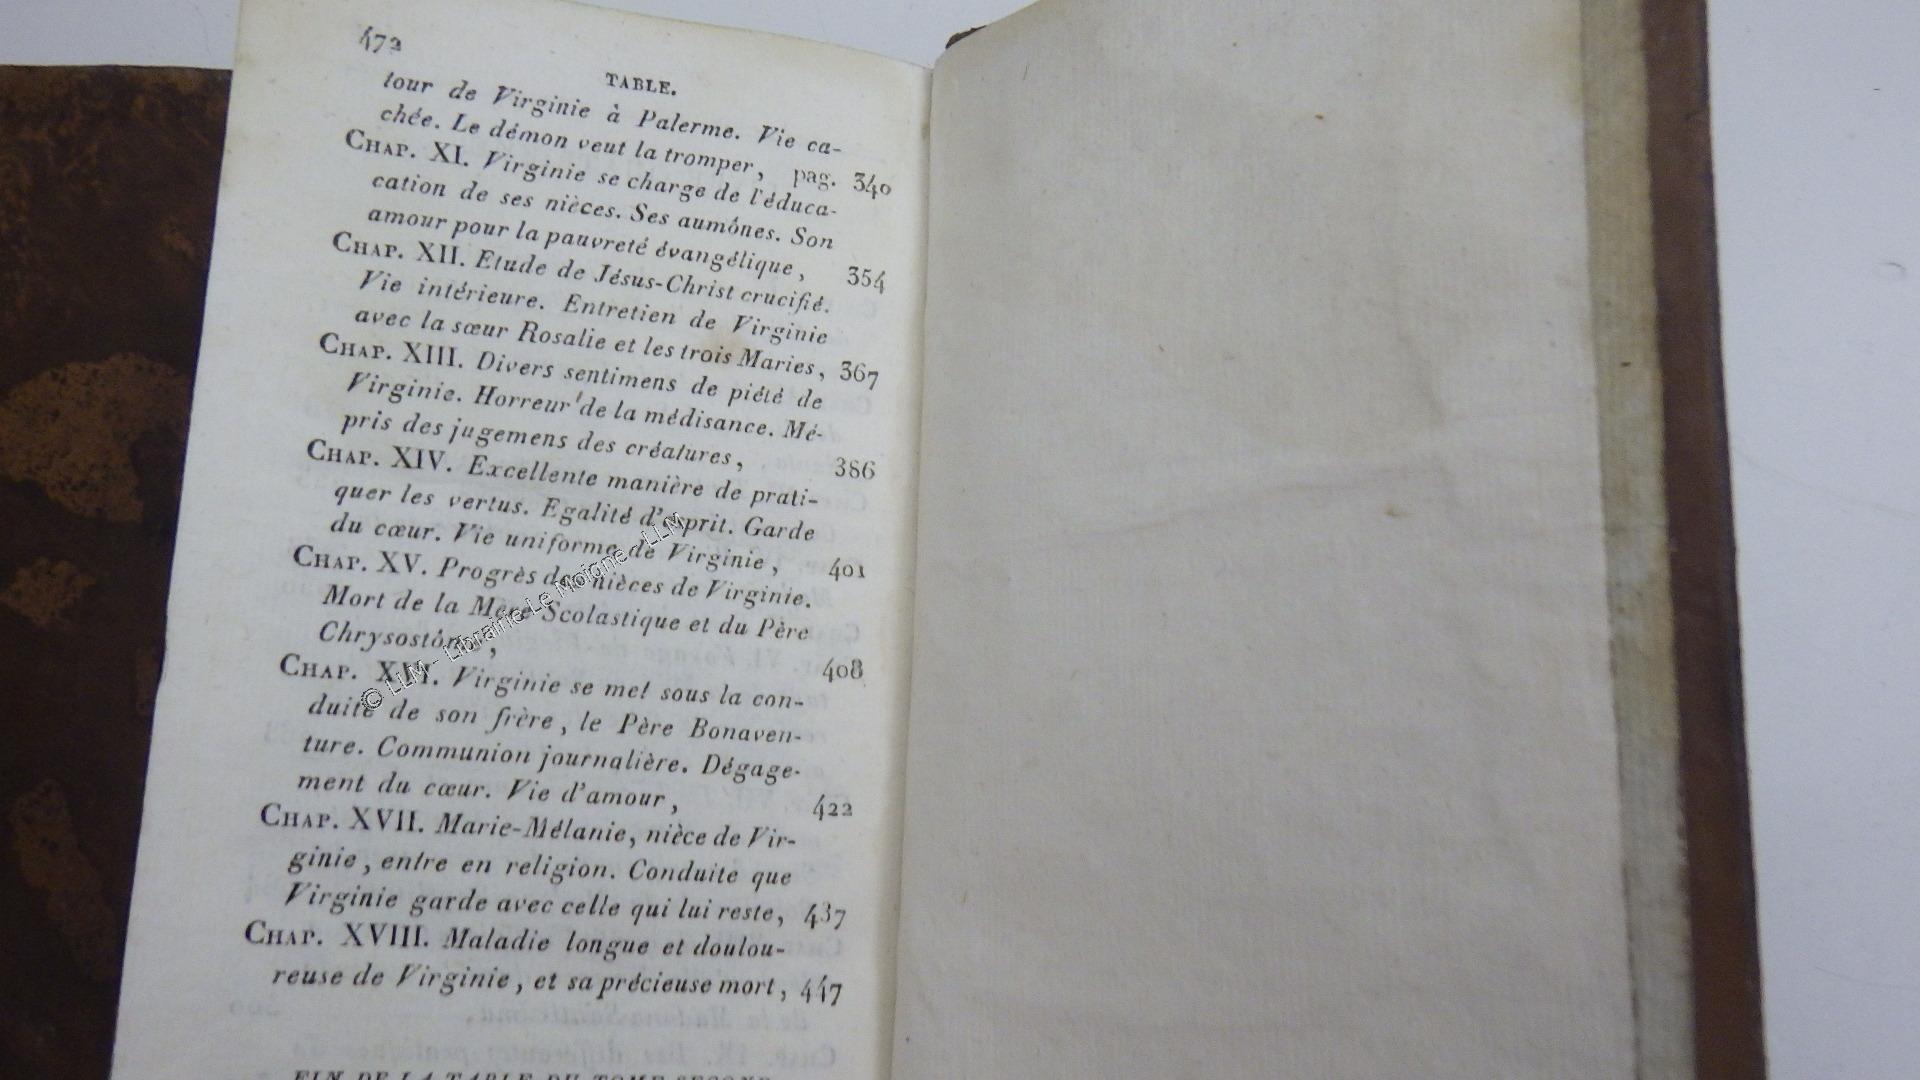 472
TABLE.
tour de Virginie à Palerme. Vie ca-
chée. Le démon veut la tromper, pag. 340
CHAP. XI. Virginie se charge de l'éduca-
cation de ses nièces. Ses aumônes. Son
amour pour la pauvreté évangélique, 354
CHAP. XII. Etude de Jésus-Christ crucifié.
Vie intérieure. Entretien de Virginie
avec la sœur Rosalie et les trois Maries, 367
CHAP. XIII. Divers sentimens de piété de
Virginie. Horreur de la médisance. Mé-
pris des jugemens des créatures, 386
CHAP. XIV. Excellente manière de prati-
quer les vertus. Egalité d'esprit. Garde
du cœur. Vie uniforme de Virginie, 401
CHAP. XV. Progrès des nièces de Virginie.
Mort de la Mère Scolastique et du Père
Chrysostôme, 408
CHAP. XVI. Virginie se met sous la con-
duite de son frère, le Père Bonaven-
ture. Communion journalière. Dégage-
ment du cœur. Vie d'amour, 422
CHAP. XVII. Marie-Mélanie, nièce de Vir-
ginie, entre en religion. Conduite que
Virginie garde avec celle qui lui reste, 437
CHAP. XVIII. Maladie longue et doulou-
reuse de Virginie, et sa précieuse mort, 447
FIN DE LA TABLE DU TOME SECOND
© LLM - Librairie Le Moigne - LLM